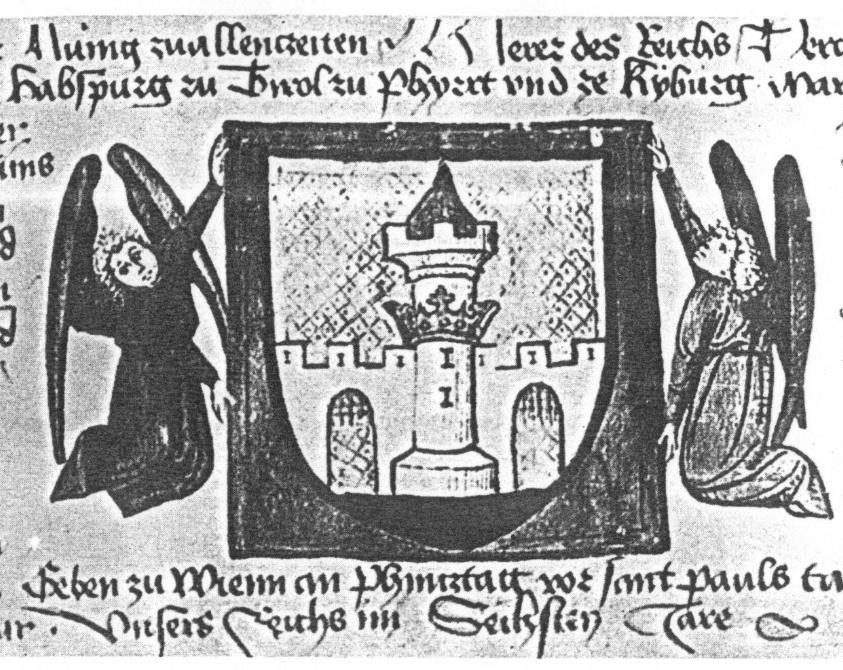 zuallentzeiten merer des Reichs
habspurg zu Tirol zu Phyrrt vnd ze Kyburg Mar
er
ums
g
Geben zu Wienn an Phincztag vor sant Pauls ta
Vnsers Reichs im Sechsten Jare